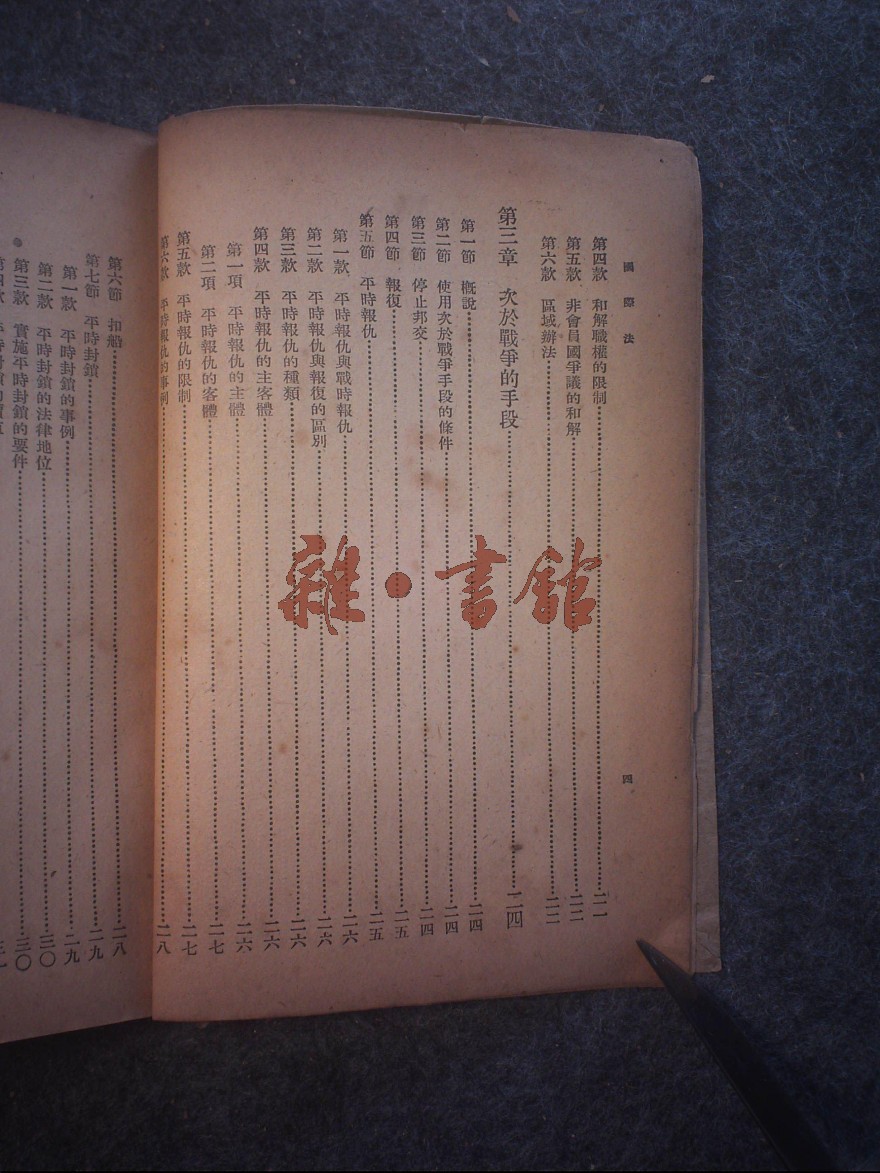 國際法
四
第四款 和解職權的限制 二一
第五款 非會員國爭議的和解 二二
第六款 區域辦法 二二
第三章 次於戰爭的手段 二四
第一節 概說 二四
第二節 使用次於戰爭手段的條件 二四
第三節 停止邦交 二四
第四節 報復 二五
第五節 平時報仇 二五
第一款 平時報仇與戰時報仇 二六
第二款 平時報仇與報復的區別 二六
第三款 平時報仇的種類 二六
第四款 平時報仇的主客體 二六
第一項 平時報仇的主體 二六
第二項 平時報仇的客體 二七
第五款 平時報仇的限制 二七
第六款 平時報仇的事例 二八
第六節 扣船 二八
第七節 平時封鎖 二九
第一款 平時封鎖的事例 二九
第二款 平時封鎖的法律地位 三〇
第三款 實施平時封鎖的要件 三〇
雜·書館